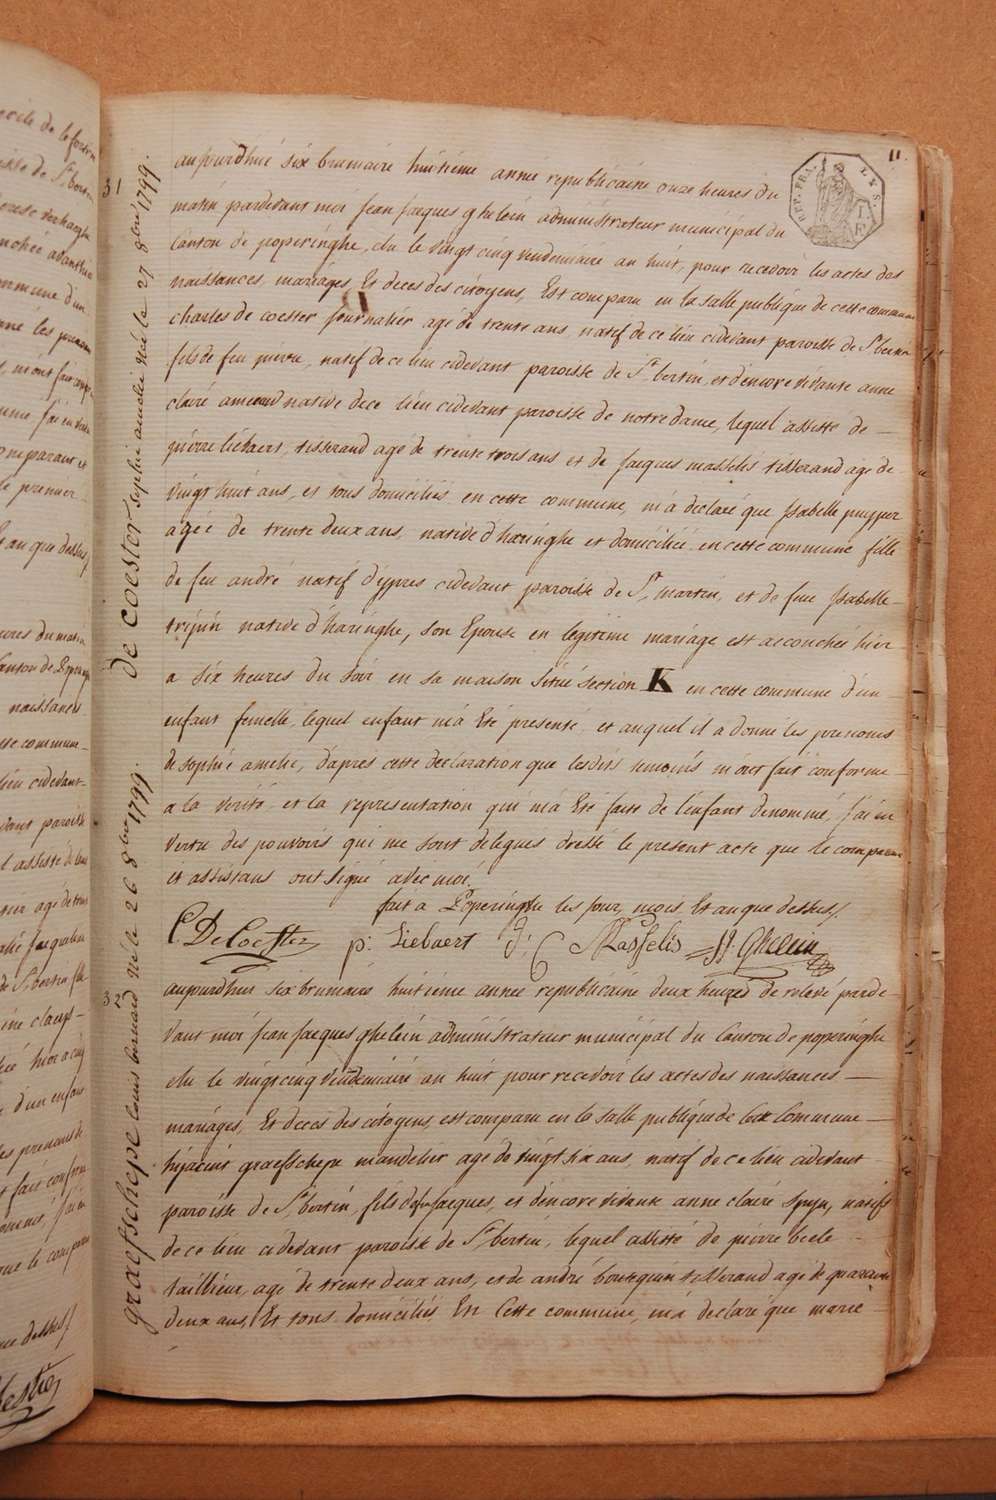 11.
REP. FRA.
LYS.
31
de Coester sophie amelie née le 27 8bre 1799.
aujourdhui six brumaire huitieme anné republicaine onze heures du
matin pardevant moi jean jacques ghelein administrateur municipal du
Canton de poperinghe, elu le vingt cinq vendemiaire an huit, pour recevoir les actes des
naissances, mariages, Et deces des citoyens, Est comparu en la salle publique de cette commune
charles de coester journalier agé de trente ans, natif de ce lieu cidevant paroisse de St bertin
fils de feu pierre, natif de ce lieu cidevant paroisse de St bertin, et d'encore vivante anne
claire ameeuw native de ce lieu cidevant paroisse de notre dame, lequel assisté de —
pierre liebaert, tisserand agé de trente trois ans et de jacques masselis tisserand agé de
vingt huit ans, et tous domiciliés en cette commune, m'a declaré que Isabelle
agée de trente deux ans, native d'haringhe et domiciliée en cette commune fille
de feu andré natif d'ypres cidevant paroisse de St martin, et de feue Isabelle
native d'haringhe, son Epouse en legitime mariage est accouchée hier
a six heures du soir en sa maison situé section K en cette commune d'un
enfant femelle, lequel enfant m'a Eté presenté, et auquel il a donné les prenoms
de sophie amelie, d'après cette declaration que lesdits temoins m'ont fait conforme
a la verité, et la representation qui m'a Eté faite de l'enfant denommé, j'ai en
vertu des pouvoirs qui me sont delegues dressé le present acte que le comparant
et assistans ont signé avec moi.
fait a Poperinghe les jour, mois Et an que dessus/
C DeCoester p: Liebaert J: C Masselis JJ. Ghelein
32
graefschepe louis bernard né le 26 8bre 1799.
aujourdhui six brumaire huitieme année republicaine deux heures de relevé parde-
vant moi jean jacques ghelein administrateur municipal du Canton de poperinghe
elu le vingt cinq vendemiaire an huit pour recevoir les actes des naissances —
mariages, Et deces des citoyens, est comparu en la salle publique de cette Commune —
hyacint graefschepe mandelier agé de vingt six ans, natif de ce lieu cidevant
paroisse de St bertin, fils de feu jacques, et d'encore vivante anne claire spyn, natifs
de ce lieu cidevant paroisse de St bertin, lequel assisté de pierre beele
taillieur, agé de trente deux ans, et de andré boutequin tisserand agé de quarante
deux ans, Et tous domiciliés En Cette commune, m'a declaré que marie —